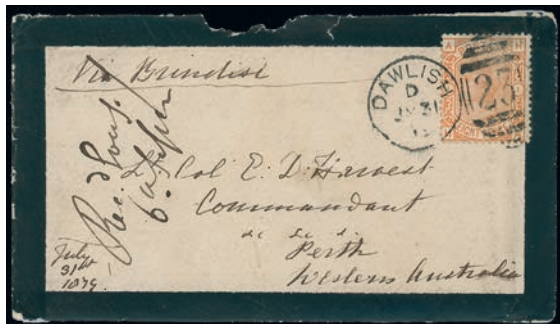 Via Brindisi
DAWLISH
D
JY 31
A H
EIGHT
Lt Col E. D. Harvest
Commandant
&c &c &c
Perth
Western Australia
July
31st
1879.